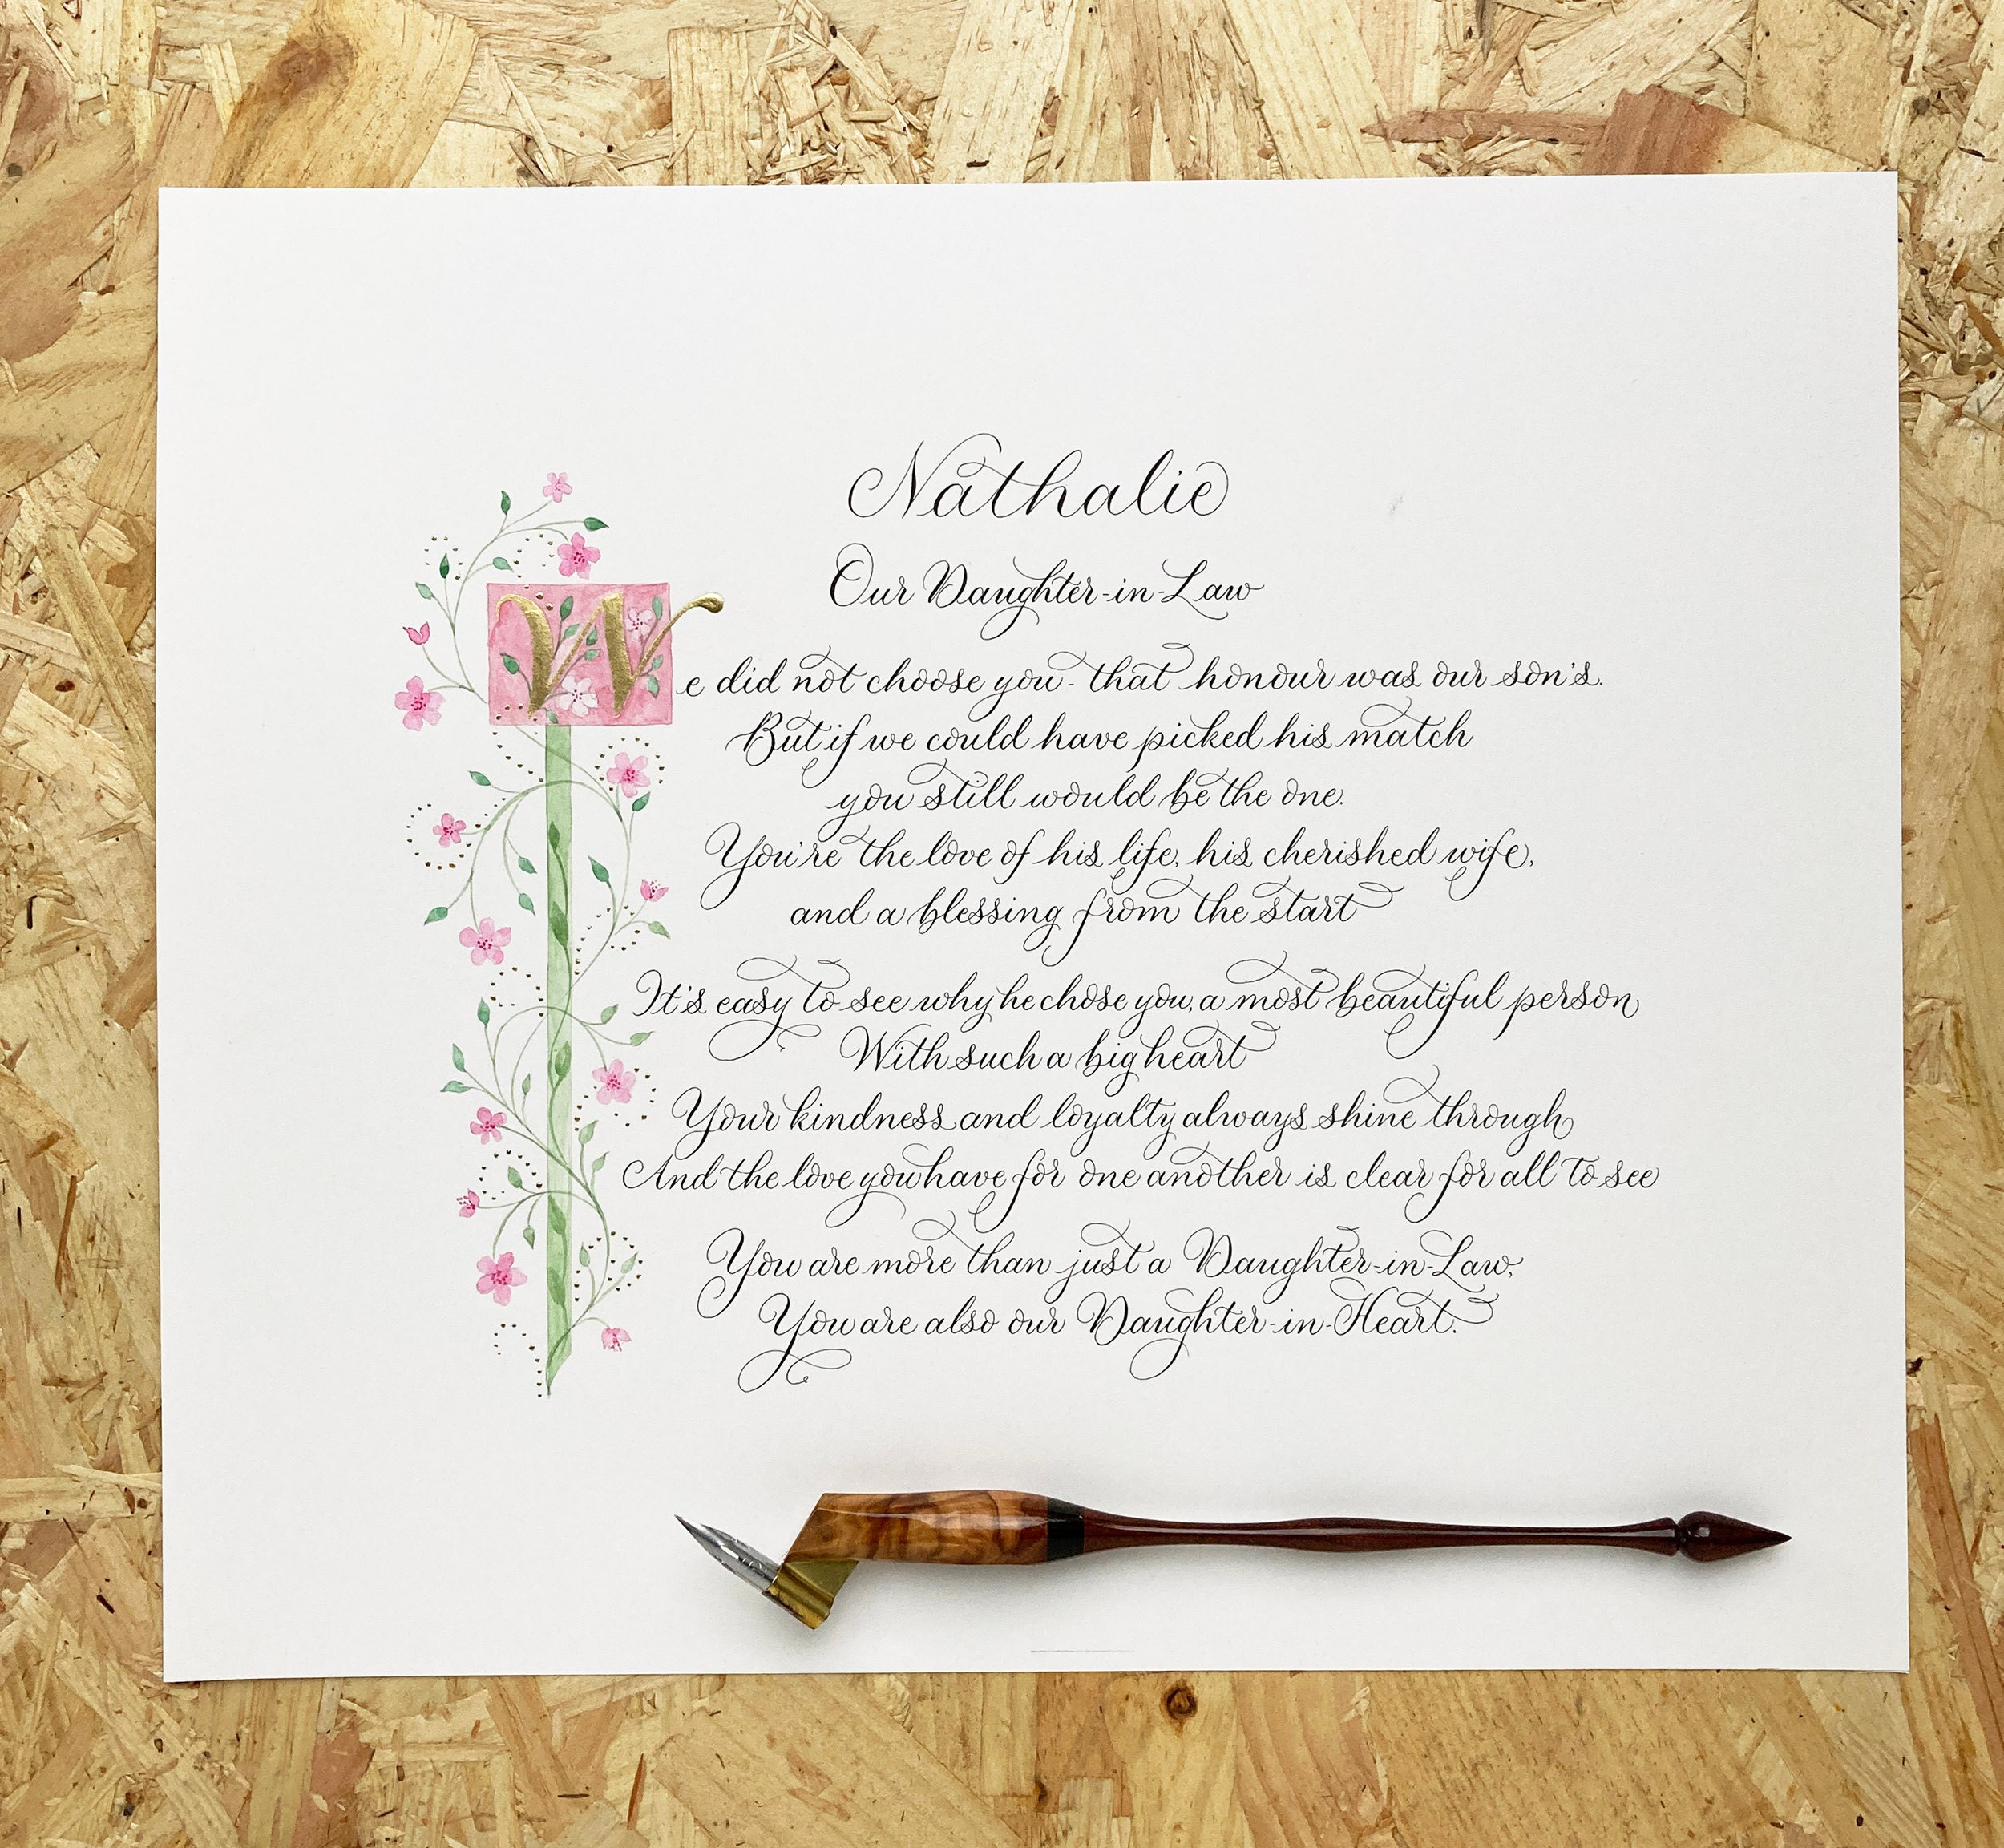 Nathalie
Our Daughter-in-Law
We did not choose you - that honour was our son's.
But if we could have picked his match
you still would be the one.
You're the love of his life, his cherished wife,
and a blessing from the start
It's easy to see why he chose you, a most beautiful person
With such a big heart
Your kindness and loyalty always shine through
And the love you have for one another is clear for all to see
You are more than just a Daughter-in-Law,
You are also our Daughter-in-Heart.